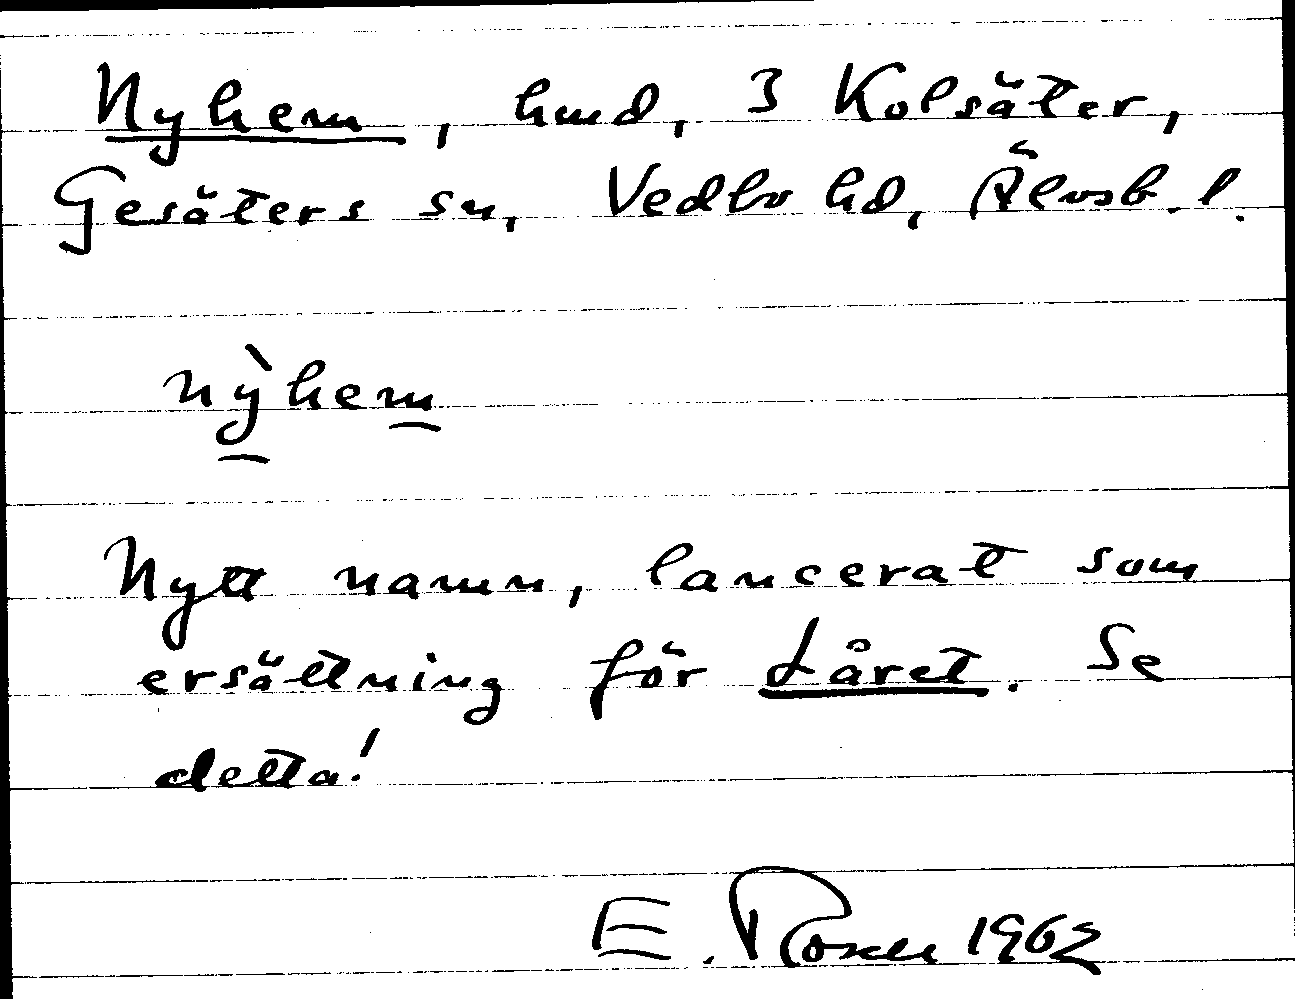 Nyhem, hmd, 3 Kolsäter,
Gesäters sn, Vedbo hd, Älvsb. l.
nỳhem
Nytt namn, lancerat som
ersättning för Låret. Se
detta!
E. Rosell 1962